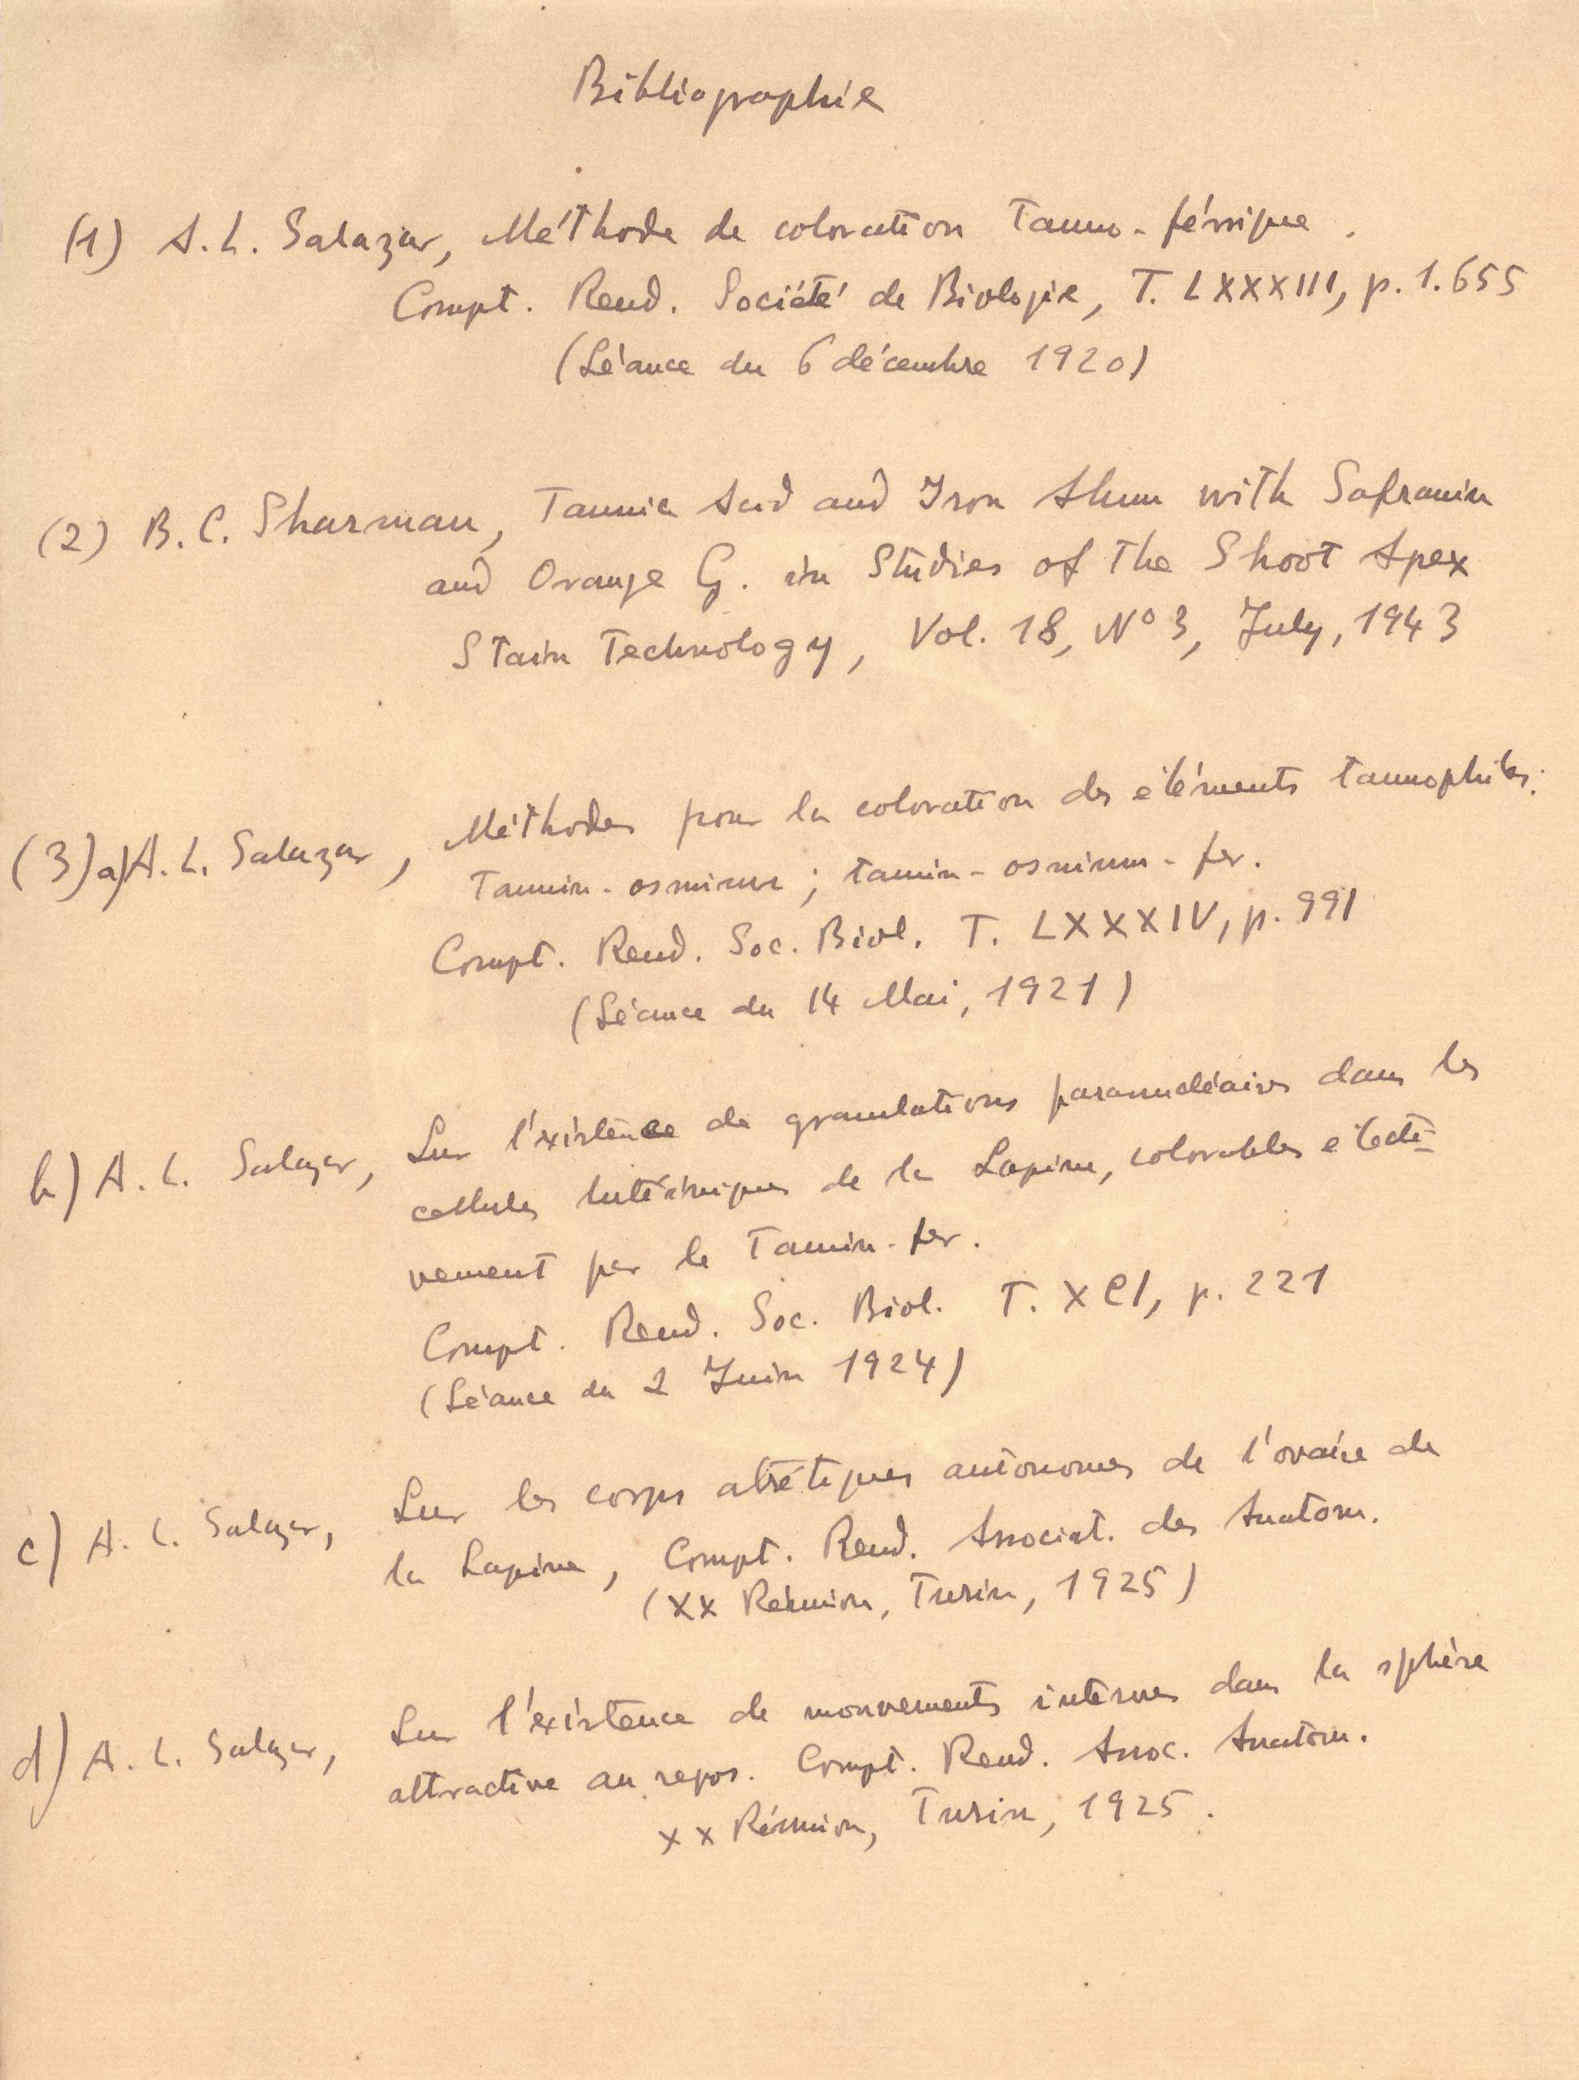 Bibliographie
(1) A. L. Salazar, Méthode de coloration Tanno-férrique.
Compt. Rend. Société de Biologie, T. LXXXIII, p. 1.655
(Séance du 6 décembre 1920)
(2) B. C. Sharman, Tannic Acid and Iron Alum with Safranin
and Orange G. in Studies of the Shoot Apex
Stain Technology, Vol. 18, Nº 3, July, 1943
(3) a) A. L. Salazar, Méthodes pour la coloration des éléments tannophiles:
Tannin-osmium; tannin-osmium-fer.
Compt. Rend. Soc. Biol. T. LXXXIV, p. 991
(Séance du 14 Mai, 1921)
b) A. L. Salazar, Sur l'existence de granulations paranucléaires dans les
cellules lutéiniques de la Lapine, colorables électi-
vement par le Tannin-fer.
Compt. Rend. Soc. Biol. T. XCI, p. 221
(Séance du 2 Juin 1924)
c) A. L. Salazar, Sur les corps atrétiques autonomes de l'ovaire de
la Lapine, Compt. Rend. Associat. des Anatom.
(XX Réunion, Turin, 1925)
d) A. L. Salazar, Sur l'existence de mouvements internes dans la sphère
attractive au repos. Compt. Rend. Assoc. Anatom.
XX Réunion, Turin, 1925.